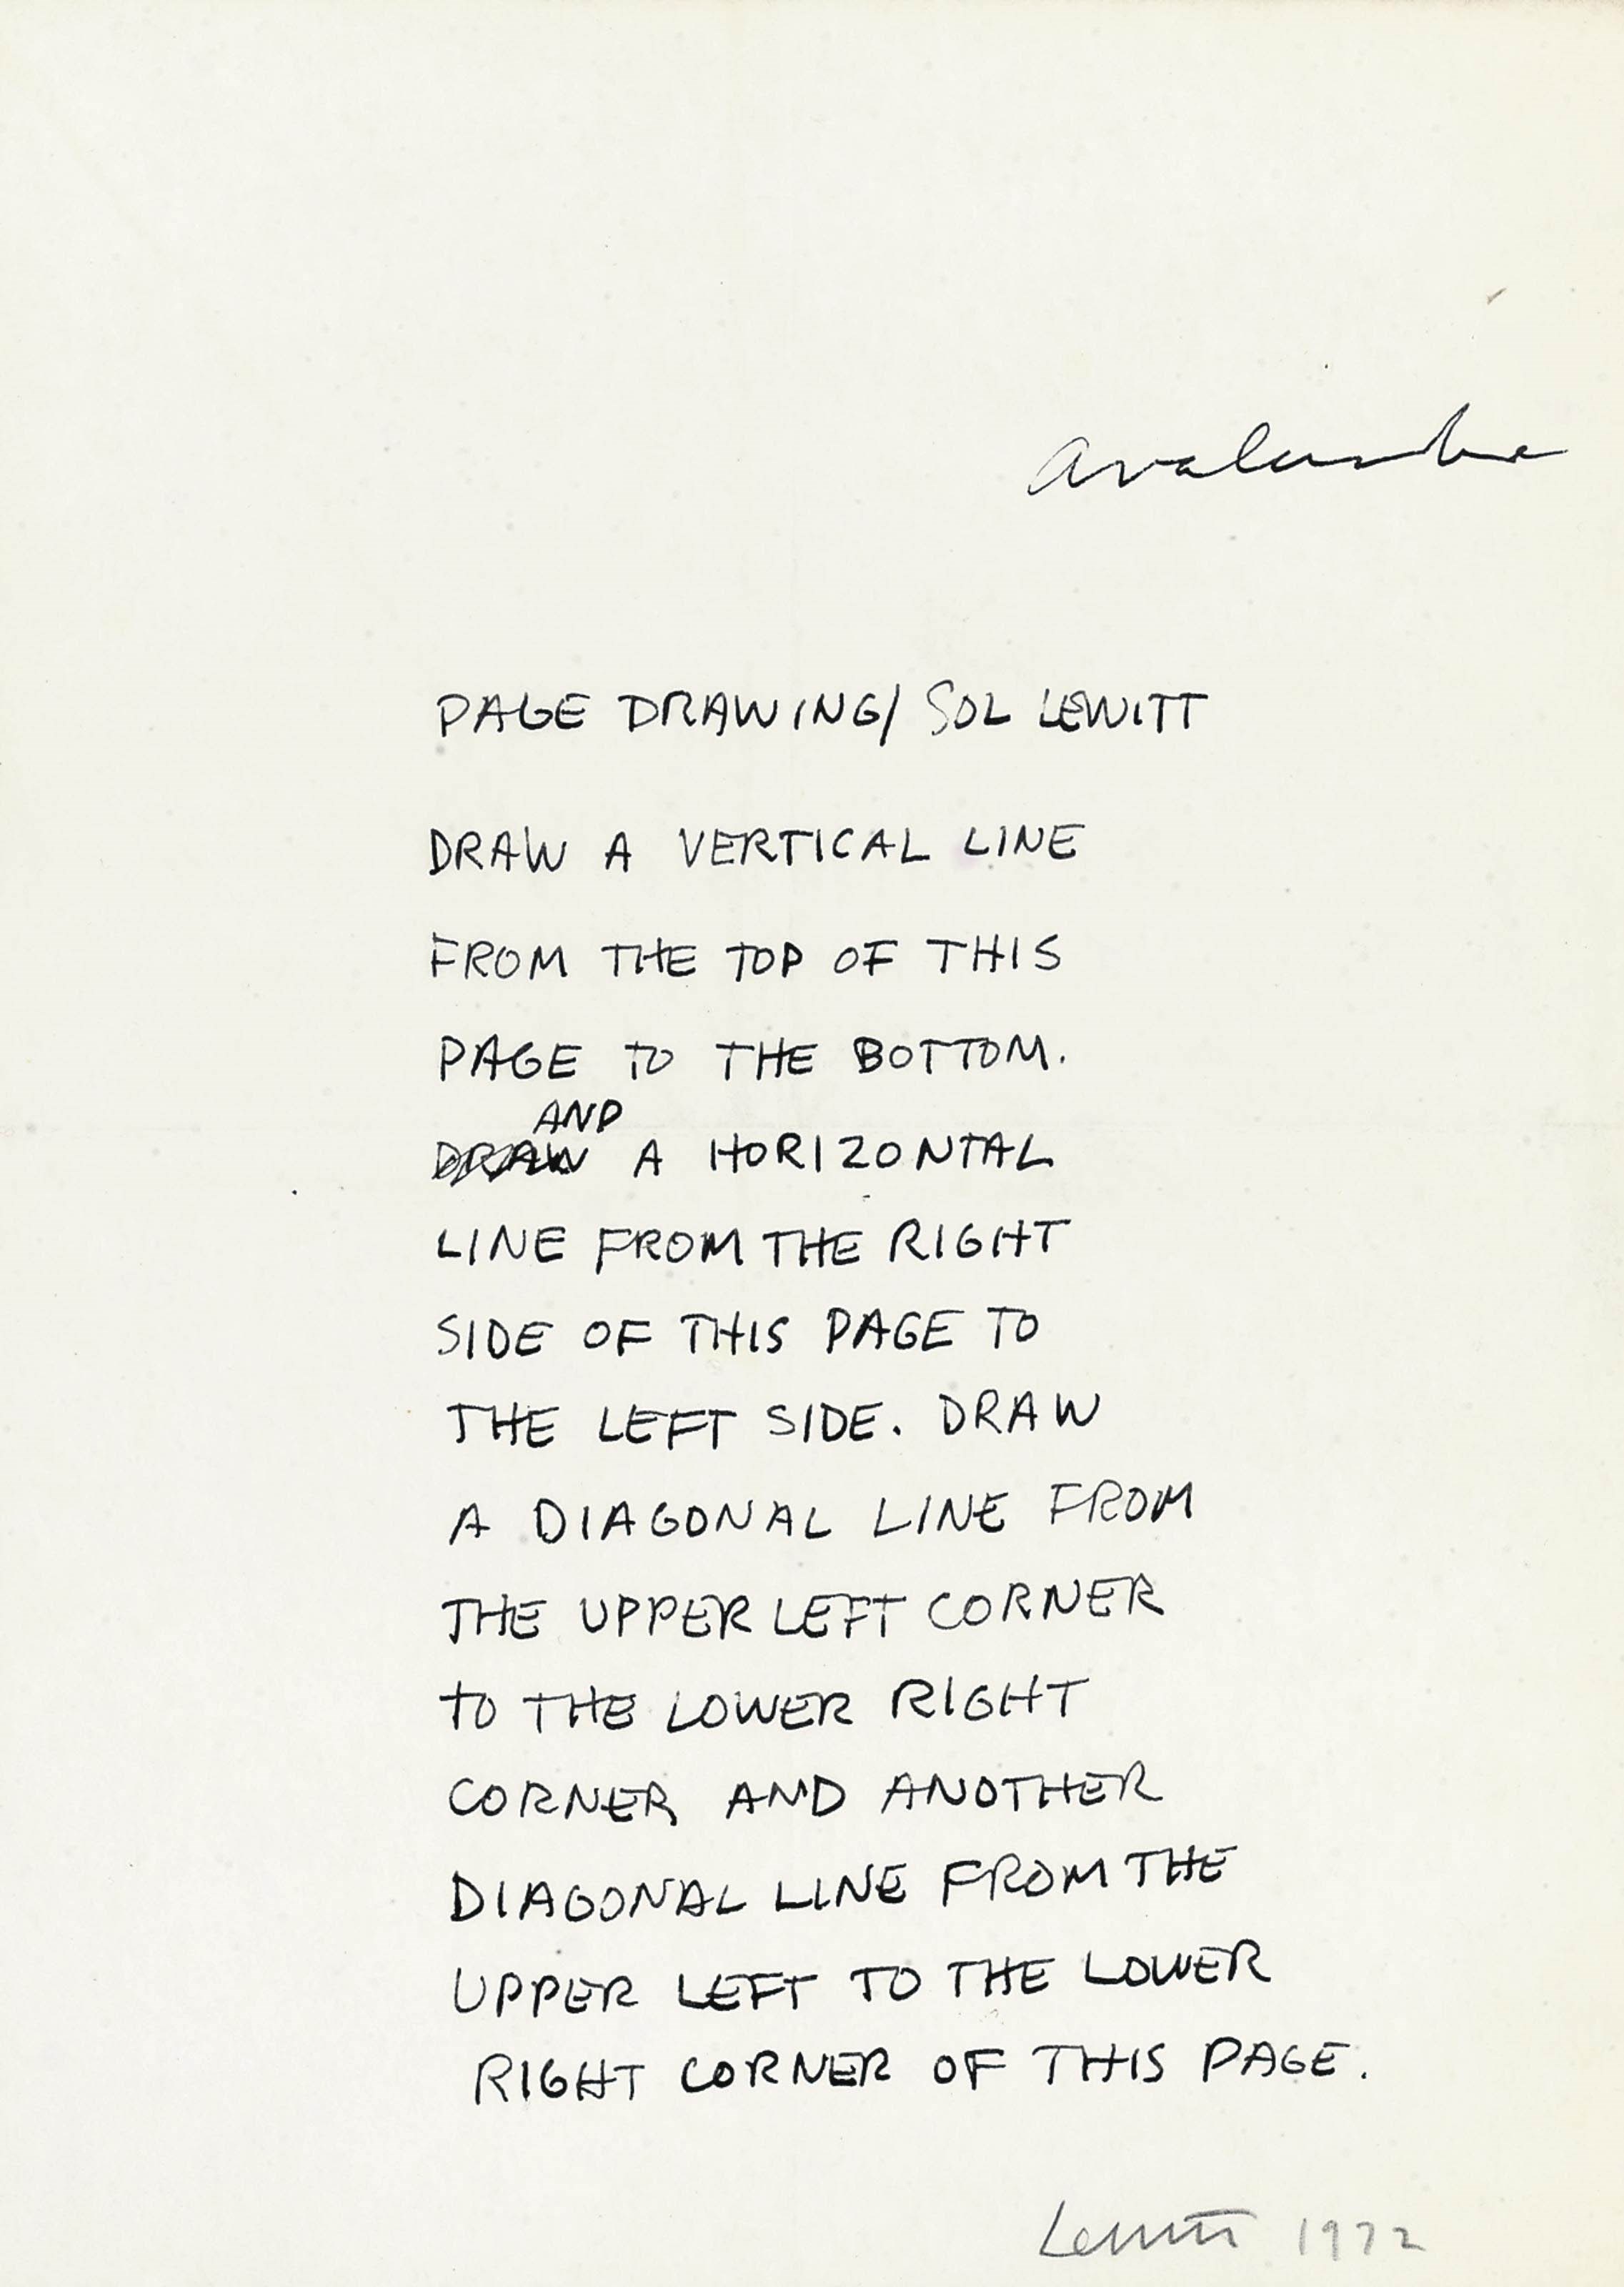 avalanche
PAGE DRAWING/ SOL LEWITT
DRAW A VERTICAL LINE
FROM THE TOP OF THIS
PAGE TO THE BOTTOM.
AND
DRAW A HORIZONTAL
LINE FROM THE RIGHT
SIDE OF THIS PAGE TO
THE LEFT SIDE. DRAW
A DIAGONAL LINE FROM
THE UPPER LEFT CORNER
TO THE LOWER RIGHT
CORNER AND ANOTHER
DIAGONAL LINE FROM THE
UPPER LEFT TO THE LOWER
RIGHT CORNER OF THIS PAGE.
Lewitt 1972